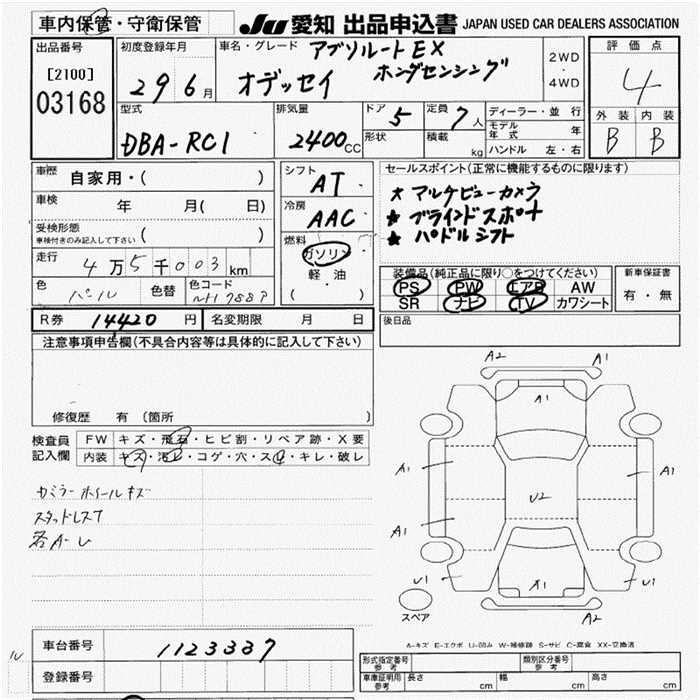 車内保管・守衛保管
JU 愛知 出品申込書 JAPAN USED CAR DEALERS ASSOCIATION
出品番号
[2100]
03168
初度登録年月
29 6月
車名・グレード アブソルートEX
オデッセイ ホンダセンシング
2WD
・
4WD
評価点
4
外装 内装
B B
型式
DBA-RC1
排気量
2400CC
ドア 5
形状
定員 7人
積載 kg
ディーラー・並行
モデル年式 年
ハンドル 左・右
車歴 自家用・( )
車検 年 月( 日)
受検形態
車検付きのみ記入して下さい ( )
走行 4万5千003km
色 パール 色替 色コード NH788P
シフト AT
冷房 AAC
燃料
ガソリン
軽・油
( ・ )
セールスポイント(正常に機能するものに限ります)
★ マルチビューカメラ
★ ブラインドスポット
★ パドルシフト
装備品(純正品に限り○をつけてください)
PS PW エアB AW
SR ナビ TV カワシート
新車保証書
有・無
R券 14420円 名変期限 月 日
後日品
注意事項申告欄(不具合内容等は具体的に記入して下さい)
修復歴 有(箇所 )
検査員
記入欄
FW キズ・飛石・ヒビ割・リペア跡・X要
内装 キズ・汚レ・コゲ・穴・スレ・キレ・破レ
カミラーホイールキズ
スタッドレスT
各A-U
A2 A1
A1
A1 A1
U2
A1
U1 X1 U1
A2
スペア
A-キズ E-エクボ U-凹み W-補修跡 S-サビ C-腐食 XX-交換済
車台番号 1123337
登録番号
形式指定番号
参考
類別区分番号
参考
車庫証明用
参考
長さ cm 幅 cm 高さ cm